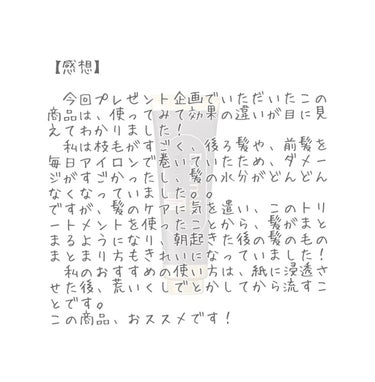 【感想】
　今回プレゼント企画でいただいたこの
商品は、使ってみて効果の違いが目に見
えてわかりました！
　私は枝毛がすごく、後ろ髪や、前髪を
毎日アイロンで巻いていたため、ダメー
ジがすごかったし、髪の水分がどんどん
なくなっていました。。
ですが、髪のケアに気を遣い、このトリ
ートメントを使ったことから、髪がまと
まるようになり、朝起きた後の髪のもの
まとまり方もきれいになっていました！
　私のおすすめの使い方は、紙に浸透さ
せた後、荒いくしでとかしてから流すこ
とです。
この商品、おススメです！